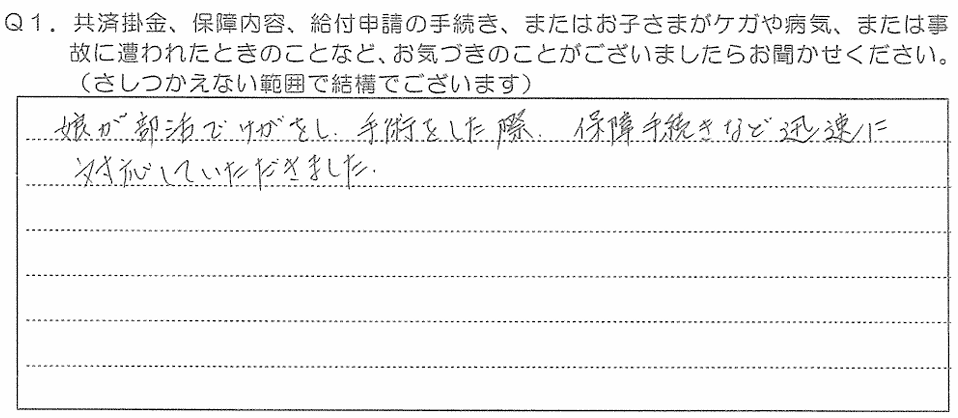 Ｑ１．共済掛金、保障内容、給付申請の手続き、またはお子さまがケガや病気、または事
故に遭われたときのことなど、お気づきのことがございましたらお聞かせください。
（さしつかえない範囲で結構でございます）
娘が部活でけがをし、手術をした際、保障手続きなど迅速に
対応していただきました。